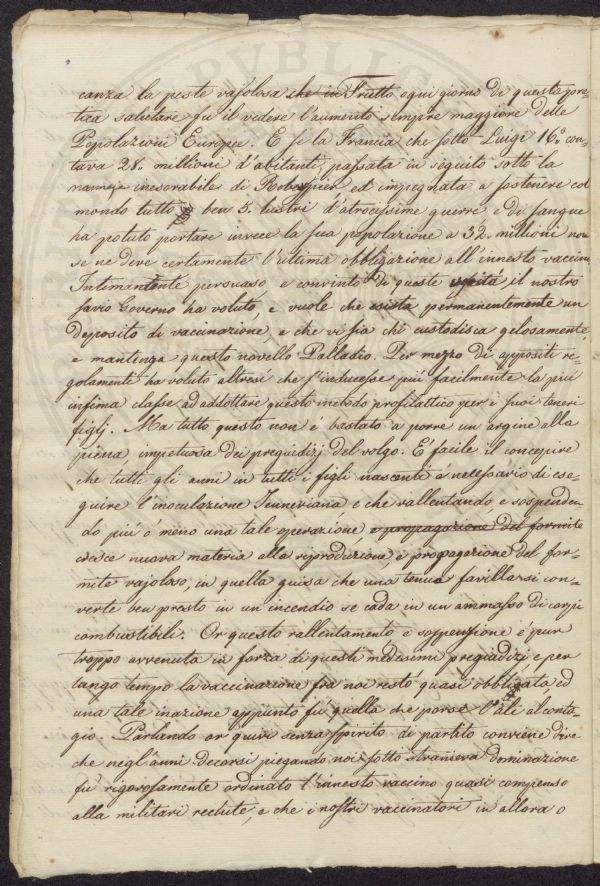 canza la peste vajolosa che in Frutto ogni giorno di questa pra-
tica salutare fu il vedere l'aumento sempre maggiore delle
Popolazioni Europee. E se la Francia che sotto Luigi 16.º con-
tava 28. millioni d'abitanti passata in seguito sotto la
inesorabile di Robespier ed impegnata a sostenere col
mondo tutto ben 5. lustri d'atrocissime guerre e di sangue
ha potuto portare invece la sua popolazione a 32. millioni non
se ne deve certamente l'ultima obbligazione all'innesto vaccino
Intimamente persuaso e convinto di queste verità il nostro
savio Governo ha voluto, e vuole che esista permanentemente un
deposito di vaccinazione, e che vi sia chi custodisca gelosamente,
e mantenga questo novello Palladio. Per mezzo di appositi re-
golamenti ha voluto altresì che s'inducesse più facilmente la più
infima classe ad addottare questo metodo profilattico per i suoi teneri
figlj. Ma tutto questo non è bastato a porre un argine alla
piena impetuosa dei pregiudizj del volgo. E' facile il concepire
che tutti gli anni in tutti i figli nascenti è necessario di ese-
guire l'inoculazione Jenneriana, e che rallentando e sospenden-
do più o meno una tale operazione e propagazione del formite
cresce nuova materia alla riproduzione, e propagazione del for-
mite vajoloso, in quella guisa che una tenue favilla si con-
verte ben presto in un incendio se cada in un ammasso di corpi
combustibili. Or questo rallentamento e soppensione è pur
troppo avvenuta in forza di questi medesimi pregiudizi e per
lungo tempo la vaccinazione fra noi restò quasi obbligata ed
una tale inazione appunto fù quella che porse l'ali al conta-
gio. Parlando or quivi senza spirito di partito conviene dire
che negl'anni decorsi piegando noi sotto straniera dominazione
fù rigorosamente ordinato l'innesto vaccino quasi compenso
alla militari reclute, e che i nostri vaccinatori in allora o